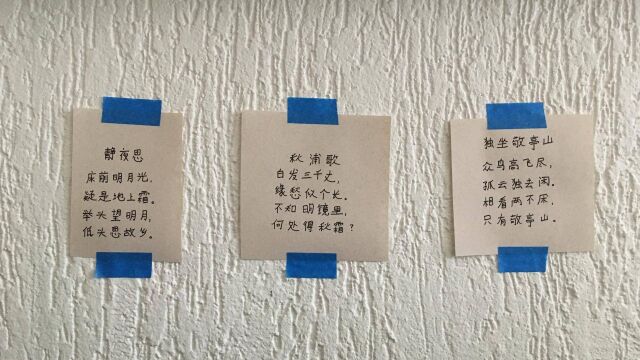 静夜思
床前明月光,
疑是地上霜。
举头望明月,
低头思故乡。
秋浦歌
白发三千丈,
缘愁似个长。
不知明镜里,
何处得秋霜?
独坐敬亭山
众鸟高飞尽,
孤云独去闲。
相看两不厌,
只有敬亭山。